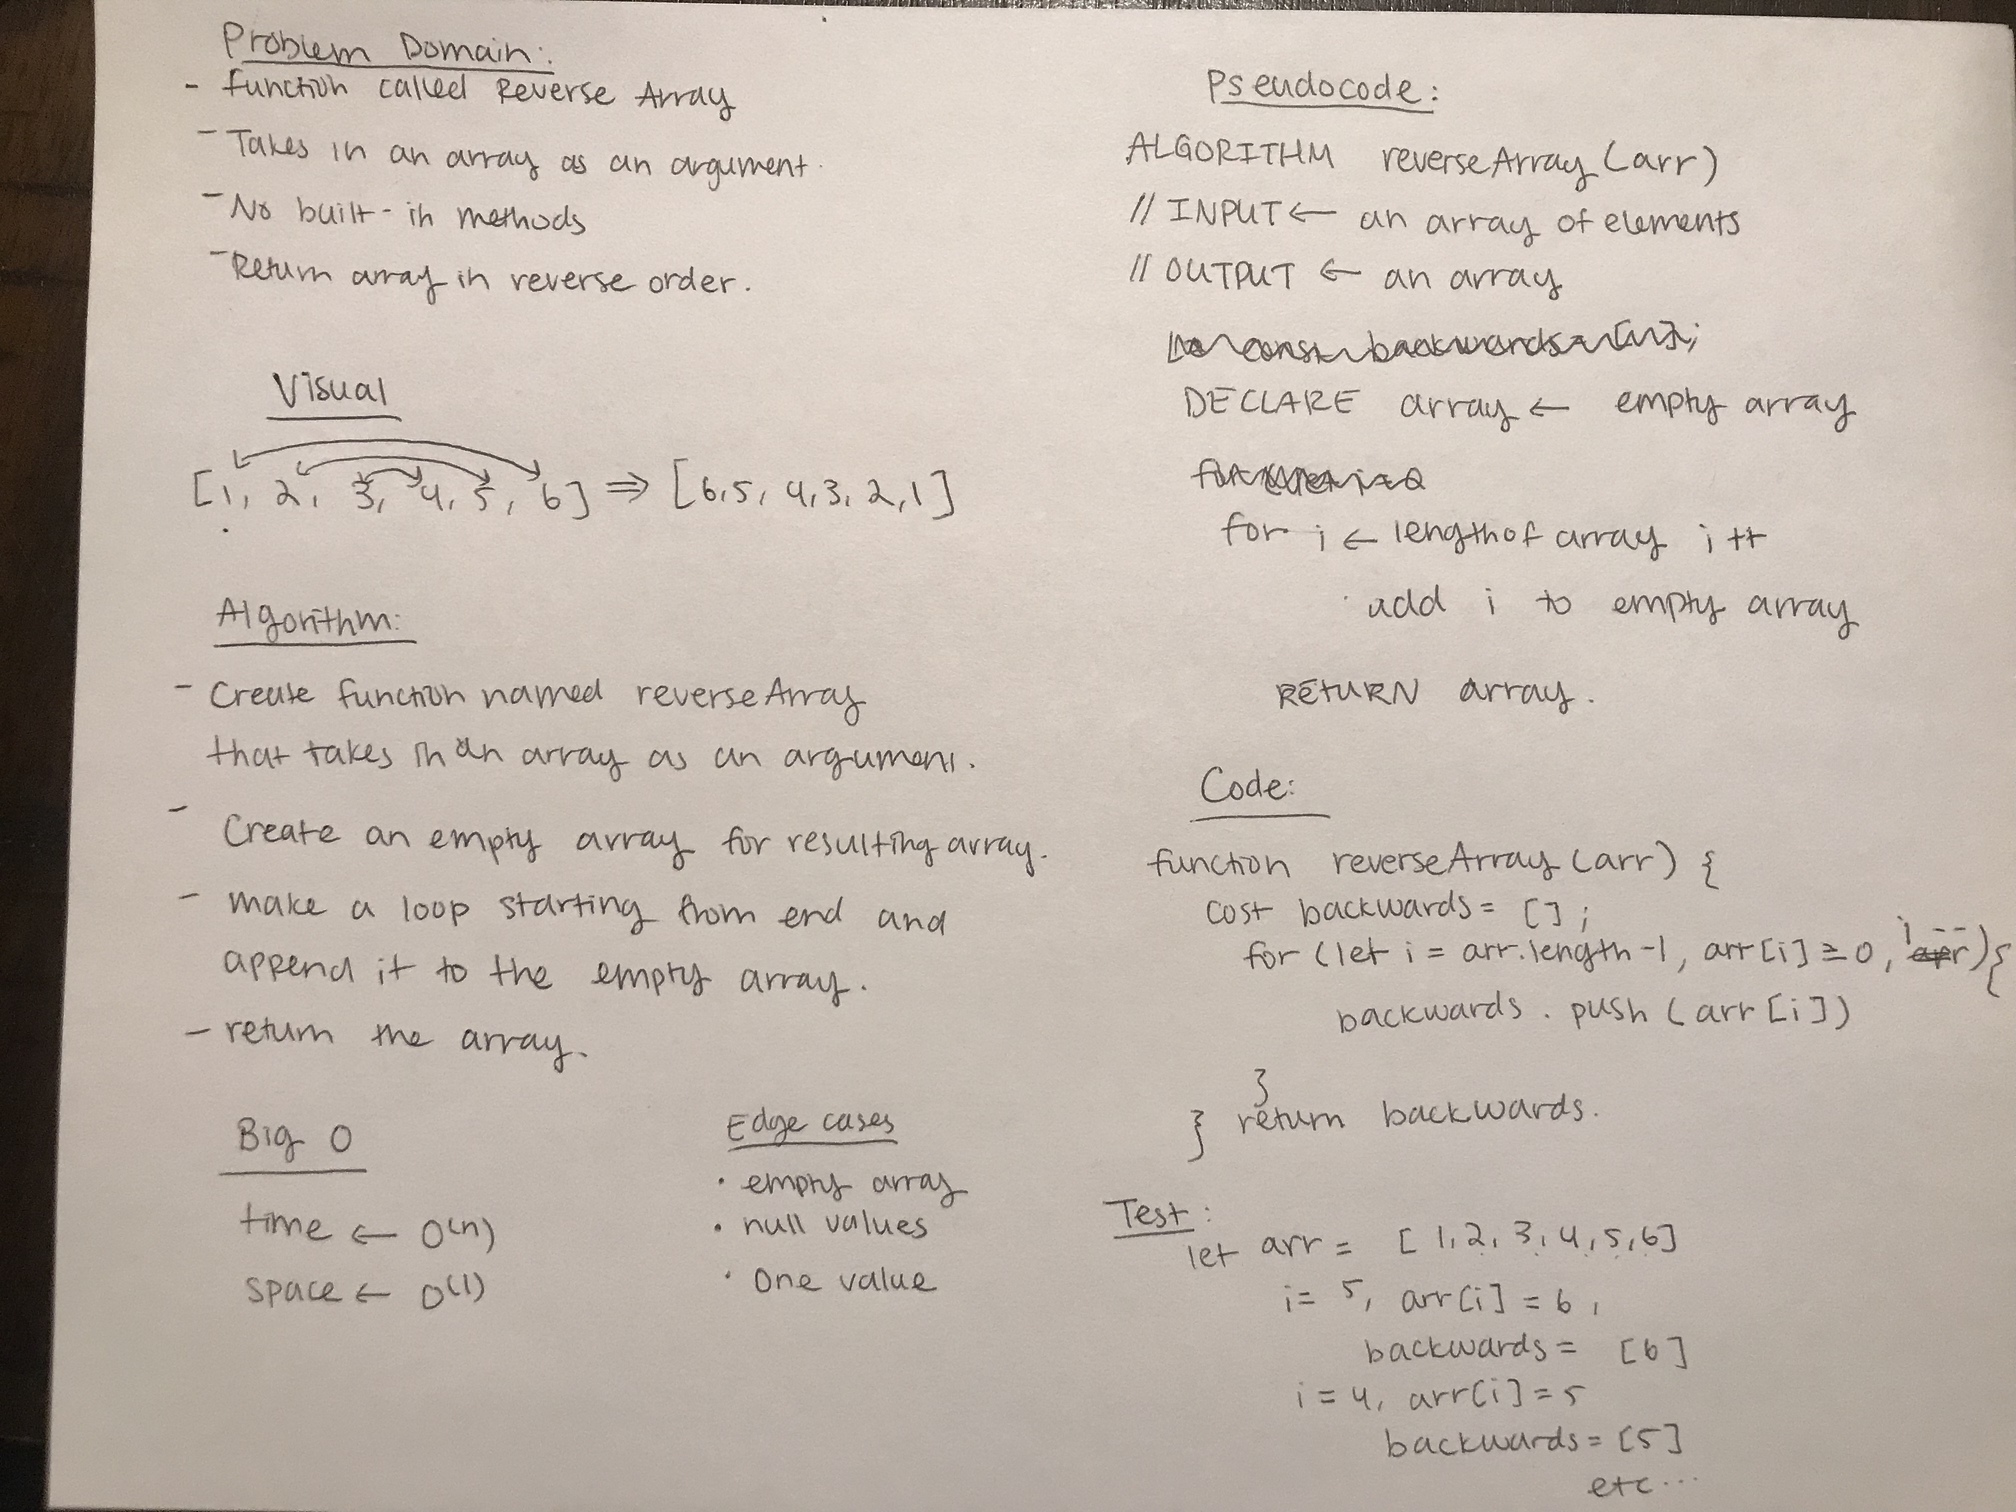 Problem Domain:
- function called Reverse Array
- Takes in an array as an argument.
- No built-in methods
- Return array in reverse order.
Visual
[1, 2, 3, 4, 5, 6] ⇒ [6,5, 4,3, 2,1]
Algorithm:
- Create function named reverseArray
that takes in an array as an argument.
- Create an empty array for resulting array.
- make a loop starting from end and
append it to the empty array.
- return the array.
Big O
time ← O(n)
space ← O(1)
Edge cases
• empty array
• null values
• One value
Pseudocode:
ALGORITHM reverseArray (arr)
// INPUT ← an array of elements
// OUTPUT ← an array
const backwards = [];
DECLARE array ← empty array
for i ← length of array i ++
add i to empty array
RETURN array.
Code:
function reverseArray (arr) {
cost backwards = [];
for (let i = arr.length -1, arr[i] ≥ 0, i--) {
backwards . push (arr [i])
}
} return backwards.
Test:
let arr = [1,2, 3, 4, 5,6]
i= 5, arr[i] = 6,
backwards = [6]
i = 4, arr[i] = 5
backwards = [5]
etc...